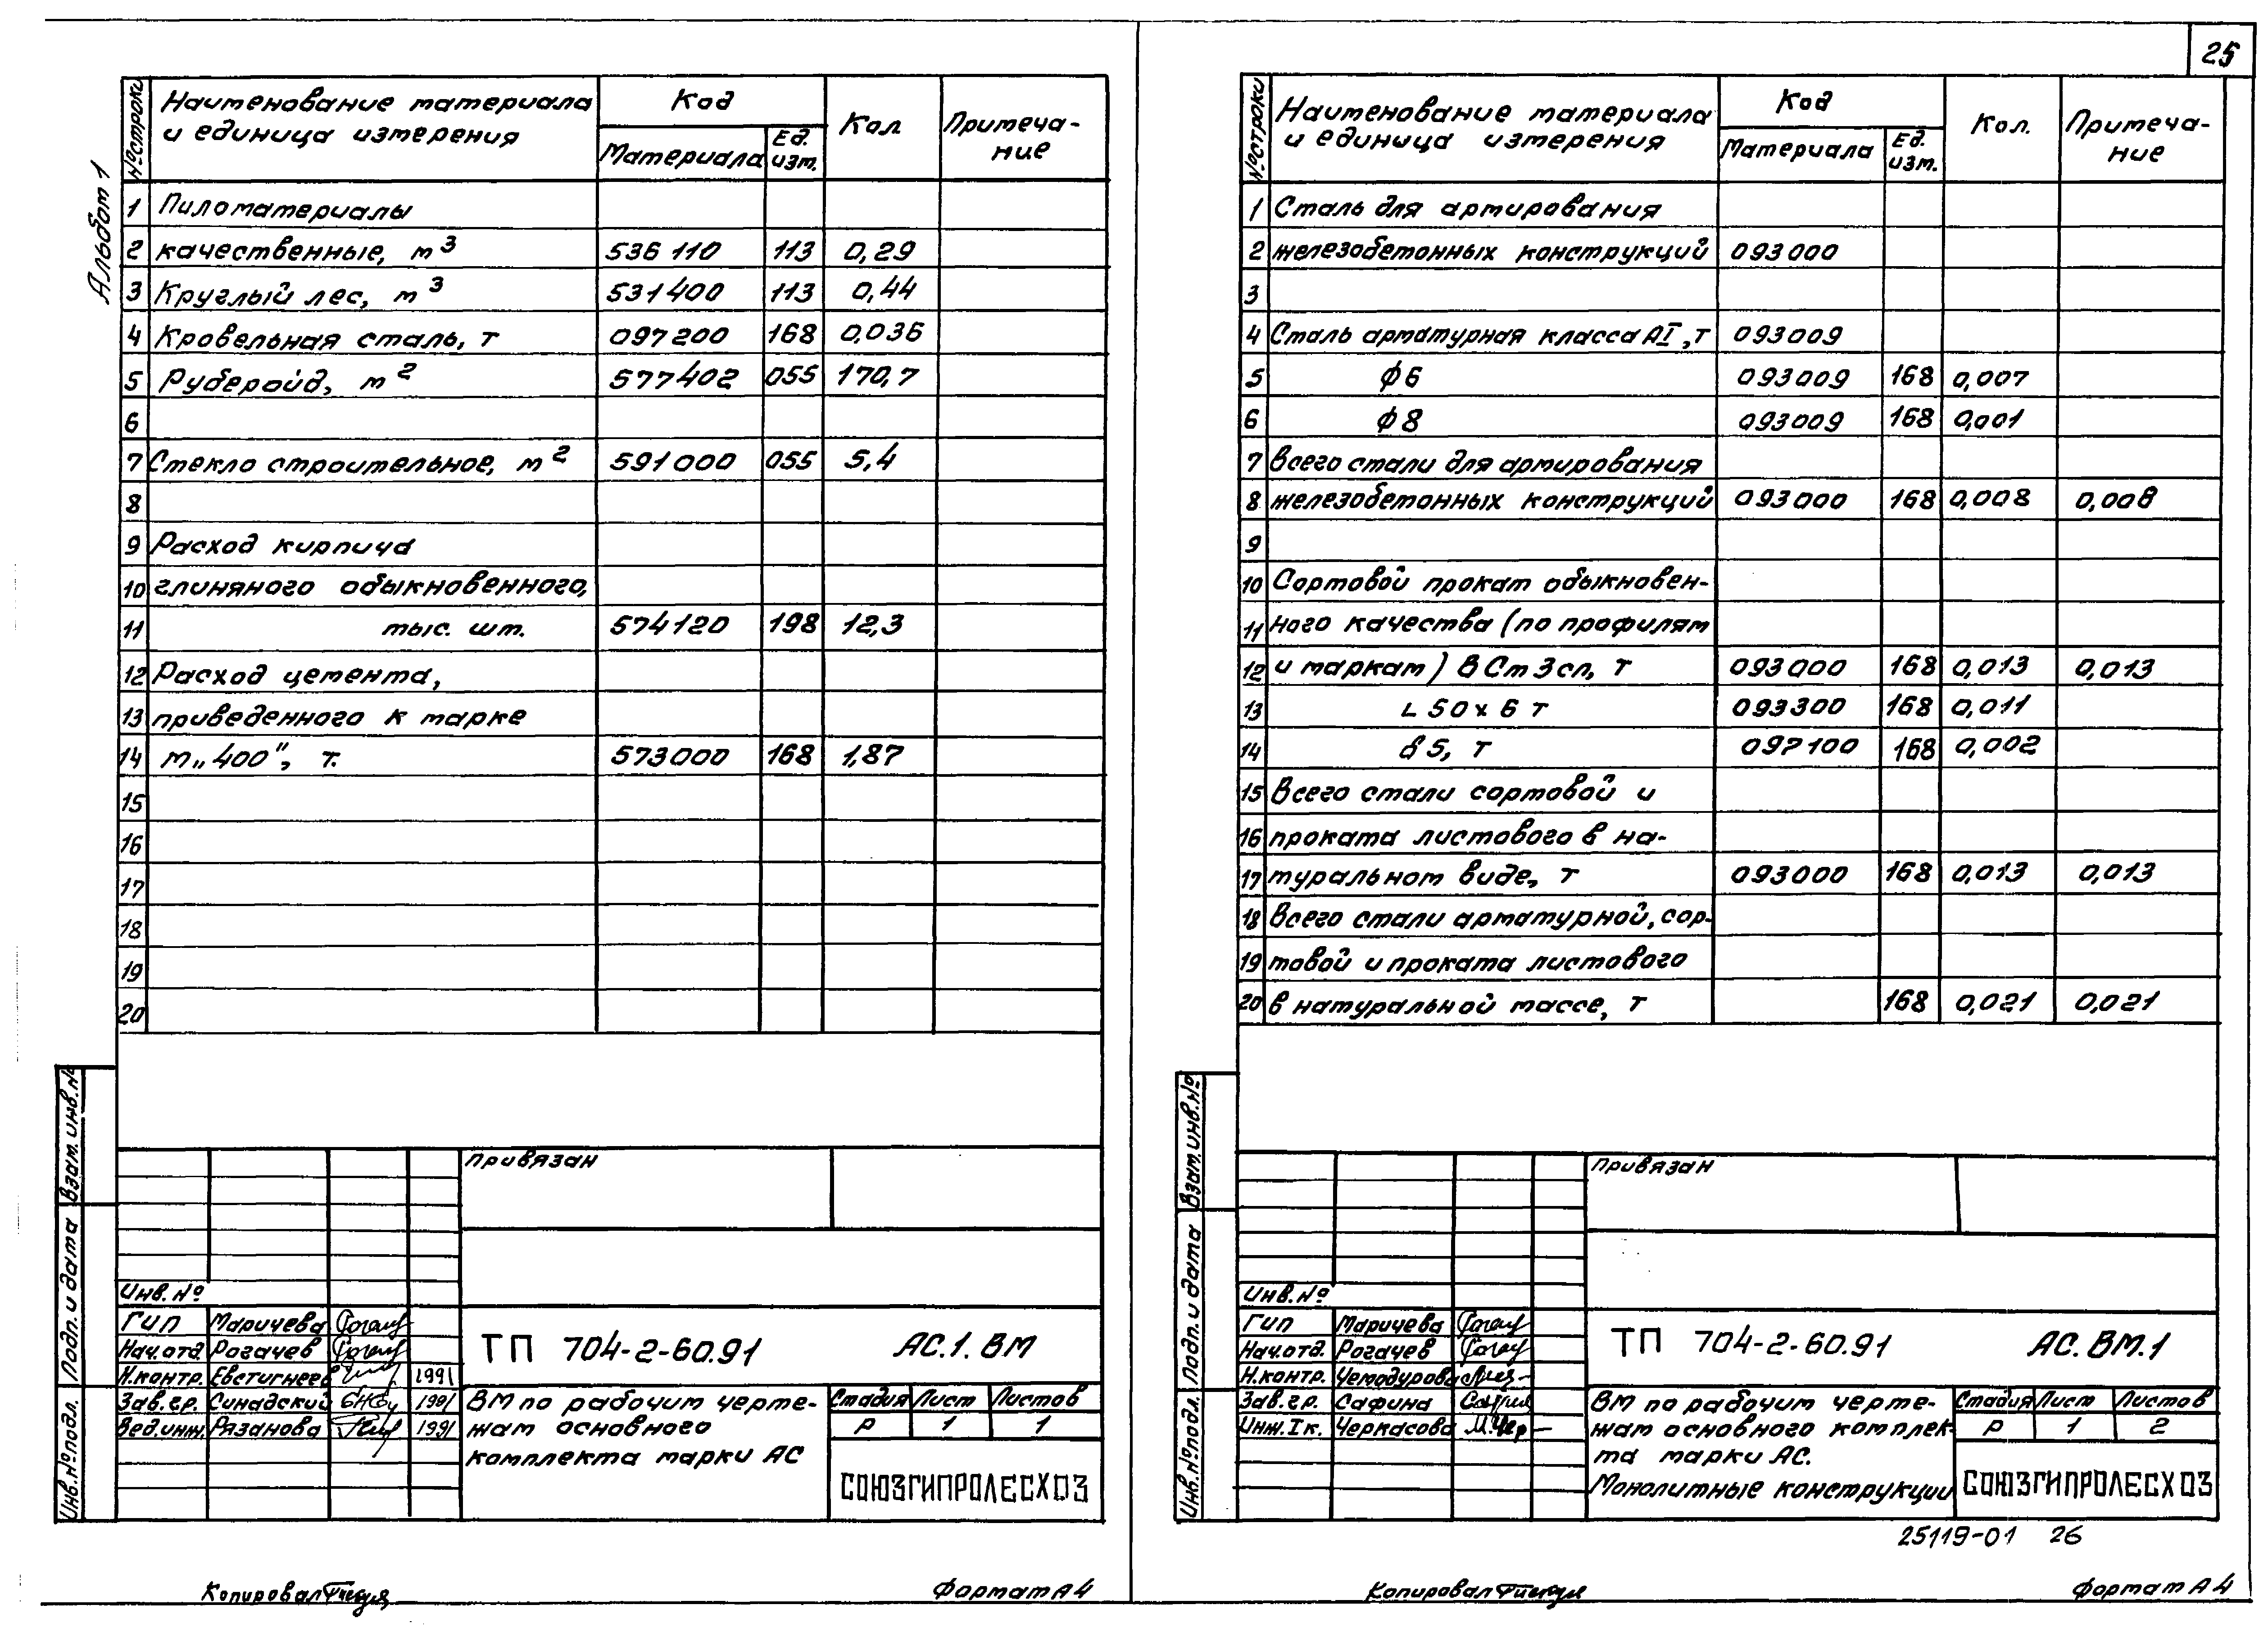 25
Альбом 1
№ строки
Наименование материала
и единица измерения
Код
Материала
Ед.
изм.
Кол
Примеча-
ние
1 Пиломатериалы
2 качественные, м3 536 110 113 0,29
3 Круглый лес, м3 531400 113 0,44
4 Кровельная сталь, т 097200 168 0,036
5 Рубероид, м2 577402 055 170,7
6
7 Стекло строительное, м2 591000 055 5,4
8
9 Расход кирпича
10 глиняного обыкновенного,
11 тыс. шт. 574120 198 12,3
12 Расход цемента,
13 приведенного к марке
14 м„400", т. 573000 168 1,87
15
16
17
18
19
20
Взам. инв. №
Подп. и дата
Инв. № подл.
привязан
Инв. №
ГИП Маричева
Нач.отд. Рогачев
Н.контр. Евстигнеев 1991
Зав.гр. Синадский 1991
Вед.инж. Рязанова 1991
ТП 704-2-60.91 АС.1.ВМ
ВМ по рабочим черте-
жам основного
комплекта марки АС
Стадия Лист Листов
Р 1 1
СОЮЗГИПРОЛЕСХОЗ
Копировал
Формат А4
№ строки
Наименование материала
и единица измерения
Код
Материала
Ед.
изм.
Кол.
Примеча-
ние
1 Сталь для армирования
2 железобетонных конструкций 093000
3
4 Сталь арматурная класса АI, т 093009
5 ф6 093009 168 0,007
6 ф8 093009 168 0,001
7 Всего стали для армирования
8 железобетонных конструкций 093000 168 0,008 0,008
9
10 Сортовой прокат обыкновен-
11 ного качества (по профилям
12 и маркам) ВСт3сп, т 093000 168 0,013 0,013
13 ∟50х6 т 093300 168 0,011
14 δ5, т 097100 168 0,002
15 Всего стали сортовой и
16 проката листового в на-
17 туральном виде, т 093000 168 0,013 0,013
18 Всего стали арматурной, сор-
19 товой и проката листового
20 в натуральной массе, т 168 0,021 0,021
Взам. инв. №
Подп. и дата
Инв. № подл.
привязан
Инв. №
ГИП Маричева
Нач.отд. Рогачев
Н.контр. Чемодурова
Зав.гр. Сафина
Инж.Iк. Черкасова
ТП 704-2-60.91 АС.ВМ.1
ВМ по рабочим черте-
жам основного комплек-
та марки АС.
Монолитные конструкции
Стадия Лист Листов
Р 1 2
СОЮЗГИПРОЛЕСХОЗ
25119-01 26
Копировал
Формат А4